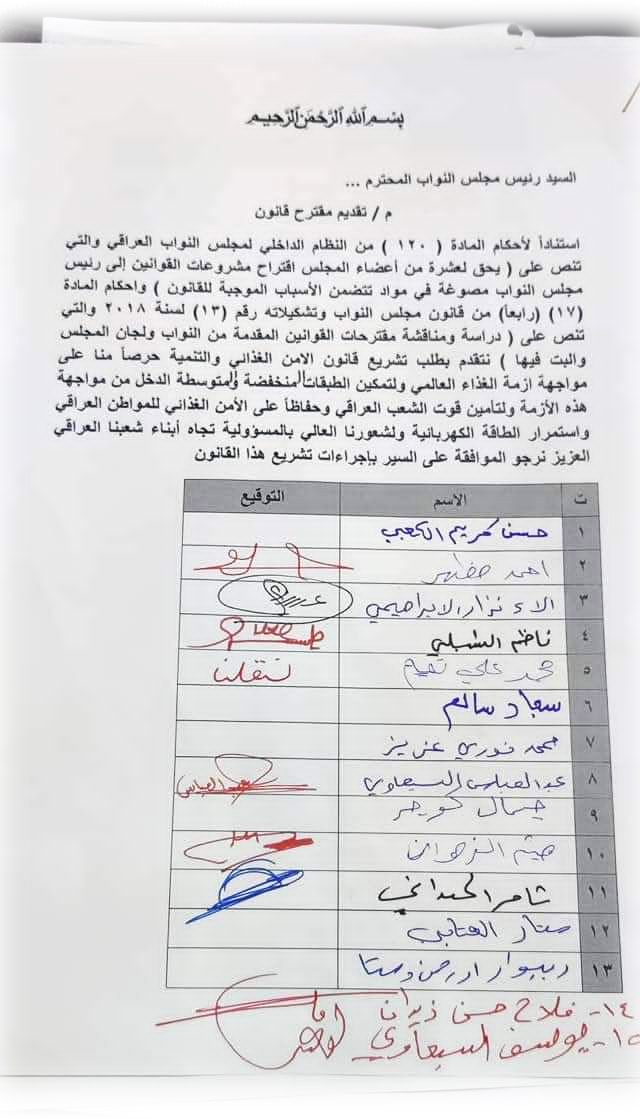 بسم الله الرحمن الرحيم
السيد رئيس مجلس النواب المحترم ...
م / تقديم مقترح قانون
استناداً لأحكام المادة ( ١٢٠ ) من النظام الداخلي لمجلس النواب العراقي والتي
تنص على ( يحق لعشرة من أعضاء المجلس اقتراح مشروعات القوانين إلى رئيس
مجلس النواب مصوغة في مواد تتضمن الأسباب الموجبة للقانون ) واحكام المادة
(١٧) (رابعاً) من قانون مجلس النواب وتشكيلاته رقم (١٣) لسنة ٢٠١٨ والتي
تنص على ( دراسة ومناقشة مقترحات القوانين المقدمة من النواب ولجان المجلس
والبت فيها ) نتقدم بطلب تشريع قانون الامن الغذائي والتنمية حرصاً منا على
مواجهة ازمة الغذاء العالمي ولتمكين الطبقات المنخفضة والمتوسطة الدخل من مواجهة
هذه الأزمة ولتأمين قوت الشعب العراقي وحفاظاً على الأمن الغذائي للمواطن العراقي
واستمرار الطاقة الكهربائية ولشعورنا العالي بالمسؤولية تجاه أبناء شعبنا العراقي
العزيز نرجو الموافقة على السير بإجراءات تشريع هذا القانون
ت الاسم التوقيع
١ حسن كريم الكعبي
٢ احمد مظهر
٣ الاء نزار الابراهيمي
٤ ناظم الشبلي
٥ محمد علي تميم
٦ سعاد سالم
٧ محمد نوري عزيز
٨ عبد العباس السيعاوي عبد العباس
٩ جمال كوجر
١٠ هيثم الزهوان
١١ ثامر الحمداني
١٢ ستار العتابي
١٣ ريبوار اورحمن
١٤- فلاح حسن زيدان
١٥- يوسف السبعاوي